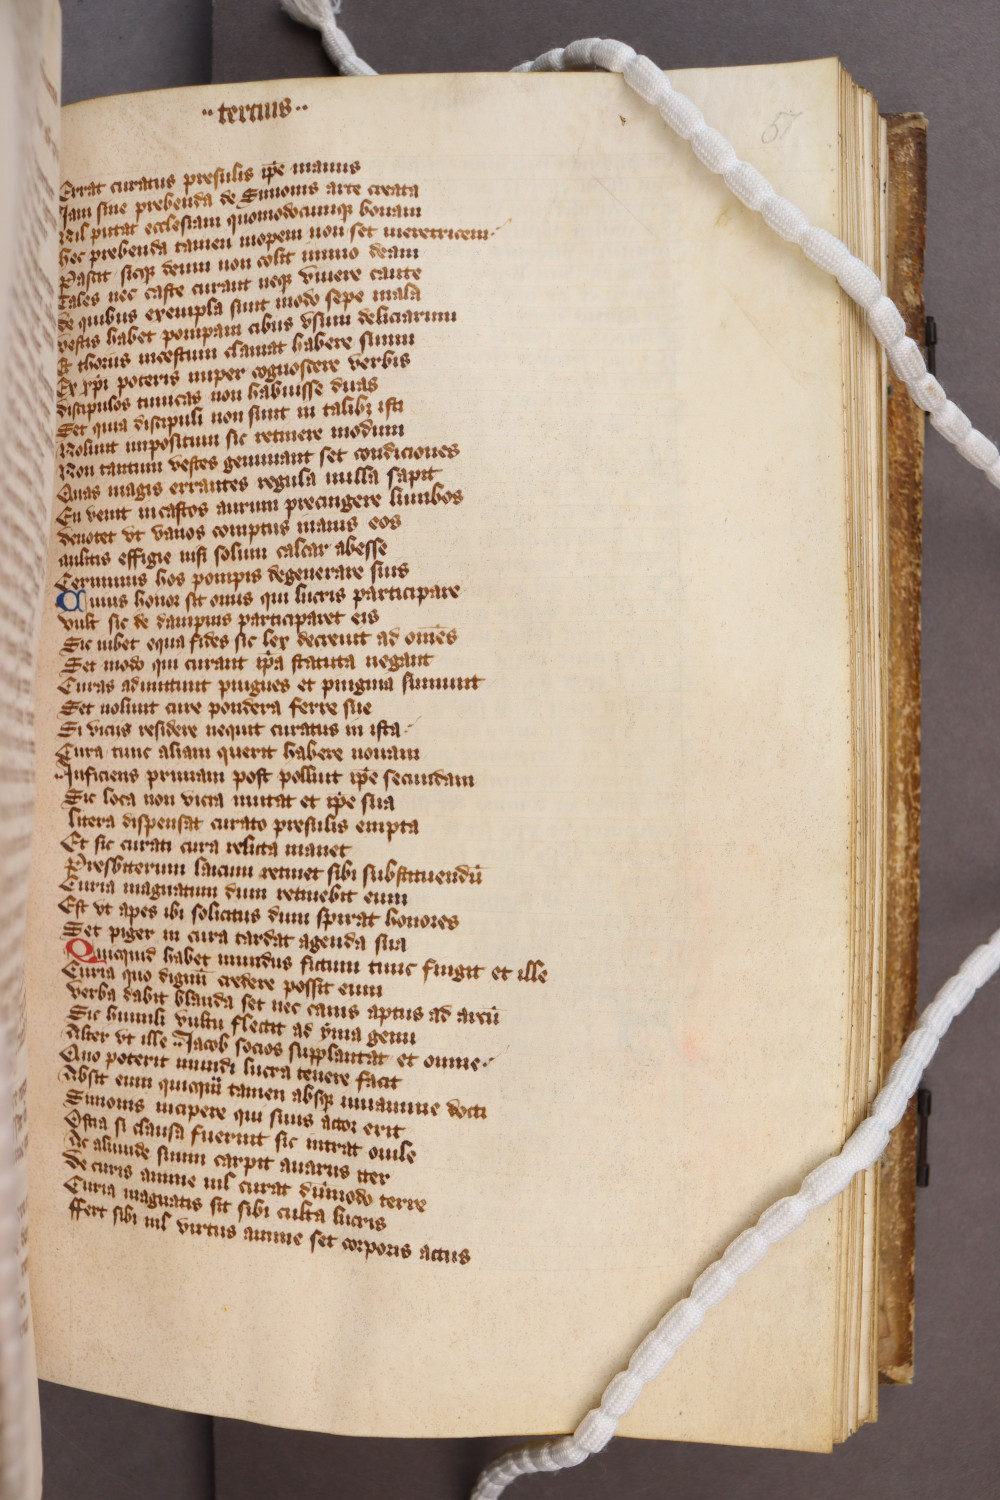 ·· tercius ··
57
Errat curatus presulis ip̄e manus
Iam sine prebenda de Simonis arte creata
Nil putat ecclesiam quomodocumqꝫ bonam
Hec prebenda tamen inopem non set meretricem
Pascit sicqꝫ deum non colit immo deam
Tales nec caste curant neqꝫ viuere caute
De quibus exempla sunt modo sepe mala
Vestis habet pompam cibus vsum deliciarum
Et thorus incestum clamat habere suum
Ex xp̄i poteris nuper cognoscere verbis
Discipulos tunicas non habuisse duas
Set quia discipuli non sunt in talibꝫ isti
Nolunt impositum sic retinere modum
Non tantum vestes geminant set condiciones
Quas magis errantes regula nulla sapit
En venit incastos aurum precingere lumbos
Denotet vt vanos comptus inanis eos
Militis effigie nisi solum calcar abesse
Cernimus hos pompis degenerare suis
Cuius honor sit onus qui lucris participare
Vult sic de dampnis participaret eis
Sic iubet equa fides sic lex decreuit ad om̄es
Set modo qui curant ip̄a statuta negant
Curas admittunt pingues et pinguia sumunt
Set nolunt cure pondera ferre sue
Si vicus residere nequit curatus in ista
Cura tunc aliam querit habere nouam
Inficiens primam post polluit ip̄e secundam
Sic loca non vicia mutat et ip̄e sua
Litera dispensat curato presulis empta
Et sic curati cura relicta manet
Presbiterum laicum retinet sibi substituendū
Curia magnatum dum retinebit eum
Est vt apes ibi solicitus dum spirat honores
Set piger in cura tardat agenda sua
Quicquid habet mundus fictum tunc fingit et ille
Curia quo dignū credere possit eum
Verba dabit blanda set nec canis aptus ad arcū
Sic humili vultu flectit ad yma genu
Alter vt ille Iacob socios supplantat et omne
Quo poterit mundi lucra tenere facit
Absit eum quicqūā tamen absqꝫ iuuamine docti
Simonis incipere qui suus actor erit
Ostia si clausa fuerint sic intrat ouile
Ac aliunde suum carpit auarus iter
De curis anime nil curat dūmodo terre
Curia magnatis sit sibi culta lucris
ffert sibi nil virtus anime set corporis actus